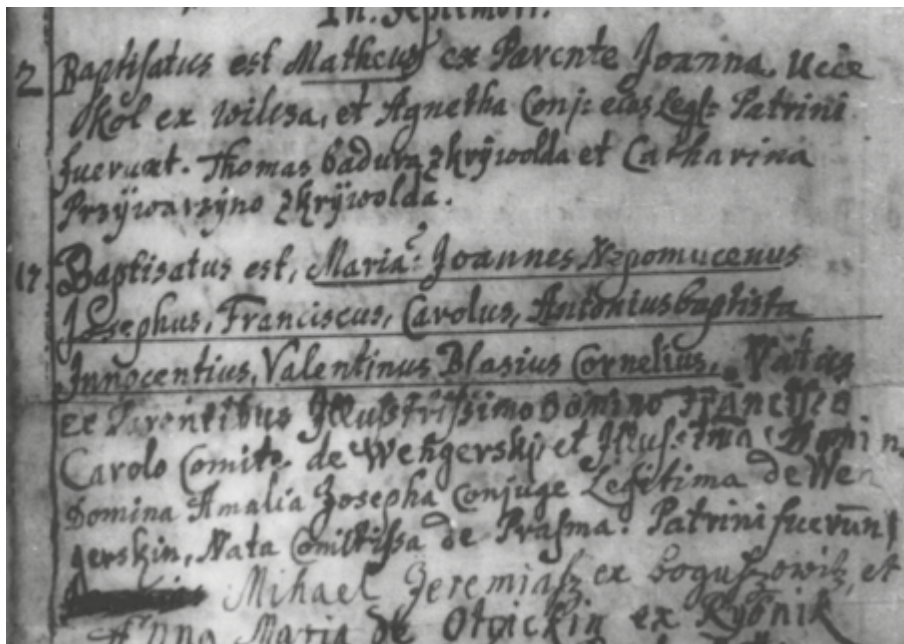 In. Septembri.
2 Baptisatus est Matheus ex Parente Joanna Ucie
kol ex wilcza, et Agnetha Conj: eius Legt: Patrini
fuerunt. Thomas badura zkrÿwolda et Catharina
Przÿwarzÿno zkrÿwolda.
17. Baptisatus est, Maria: Joannes Nepomucenus
Josephus, Franciscus, Carolus, Antonius baptista
Innocentius, Valentinus Blasius Cornelius, Natus
ex Parentibus Illustrissimo Domino Francisco
Carolo Comite de Wengerskÿ, et Illus: tma
Domina Amalia Josepha Conjuge Legitima de Wen
gerskin, Nata Comitissa de Prasma: Patrini fuerun
Mihael Jeremiasz ex boguszowitz, et
Anna Maria de Ex Rybnik